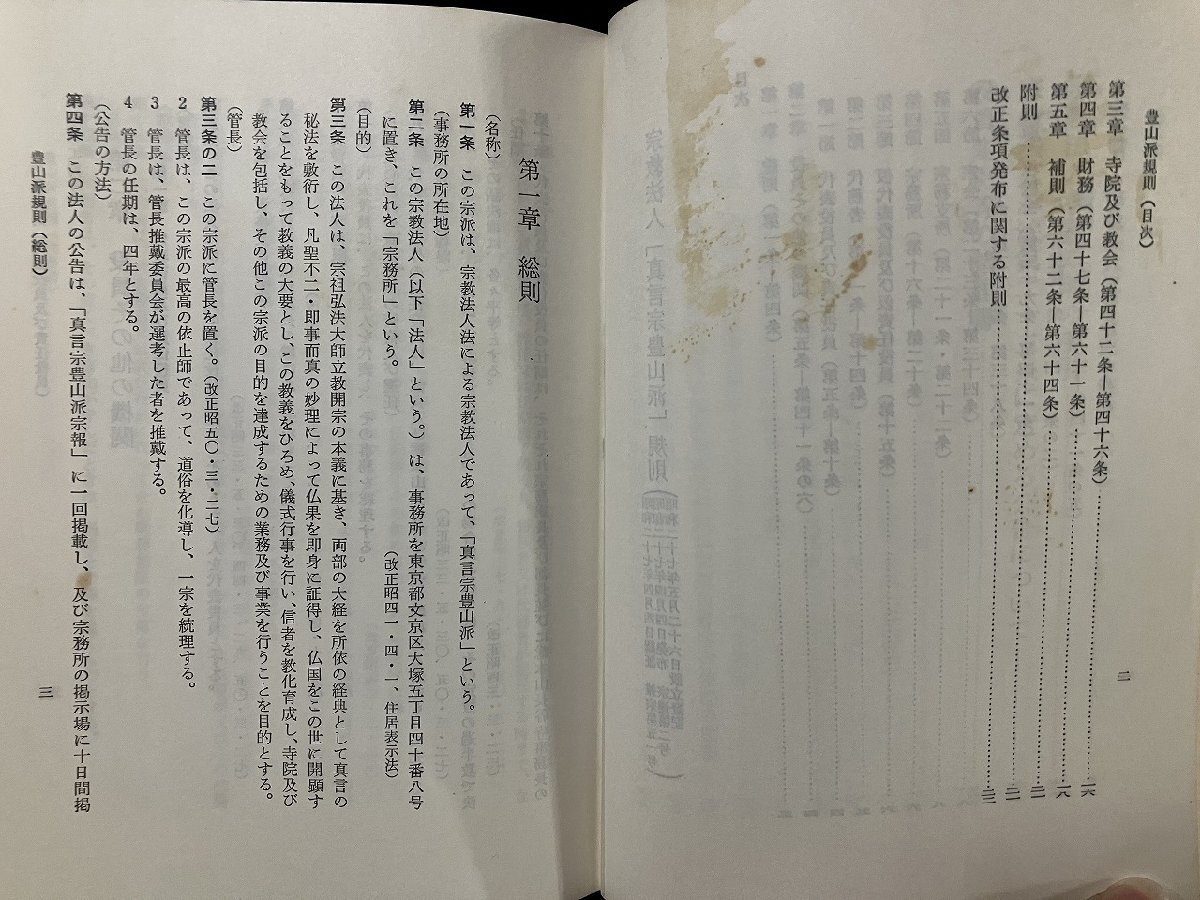 豊山派規則（目次）
第三章　寺院及び教会（第四十二条―第四十六条）……一六
第四章　財務（第四十七条―第六十一条）……一八
第五章　補則（第六十二条―第六十四条）……二一
附則……二一
改正条項発布に関する附則……二三
二
第一章　総則
（名称）
第一条　この宗派は、宗教法人法による宗教法人であって、「真言宗豊山派」という。
（事務所の所在地）
第二条　この宗教法人（以下「法人」という。）は、事務所を東京都文京区大塚五丁目四十番八号
に置き、これを「宗務所」という。　（改正昭四一・四・一、住居表示法）
（目的）
第三条　この法人は、宗祖弘法大師立教開宗の本義に基き、両部の大経を所依の経典として真言の
秘法を敷衍し、凡聖不二・即事而真の妙理によって仏果を即身に証得し、仏国をこの世に開顕す
ることをもって教義の大要とし、この教義をひろめ、儀式行事を行い、信者を教化育成し、寺院及び
教会を包括し、その他この宗派の目的を達成するための業務及び事業を行うことを目的とする。
（管長）
第三条の二　この宗派に管長を置く。（改正昭五〇・三・二七）
2　管長は、この宗派の最高の依止師であって、道俗を化導し、一宗を統理する。
3　管長は、管長推戴委員会が選考した者を推戴する。
4　管長の任期は、四年とする。
（公告の方法）
第四条　この法人の公告は、「真言宗豊山派宗報」に一回掲載し、及び宗務所の掲示場に十日間掲
豊山派規則（総則）
三